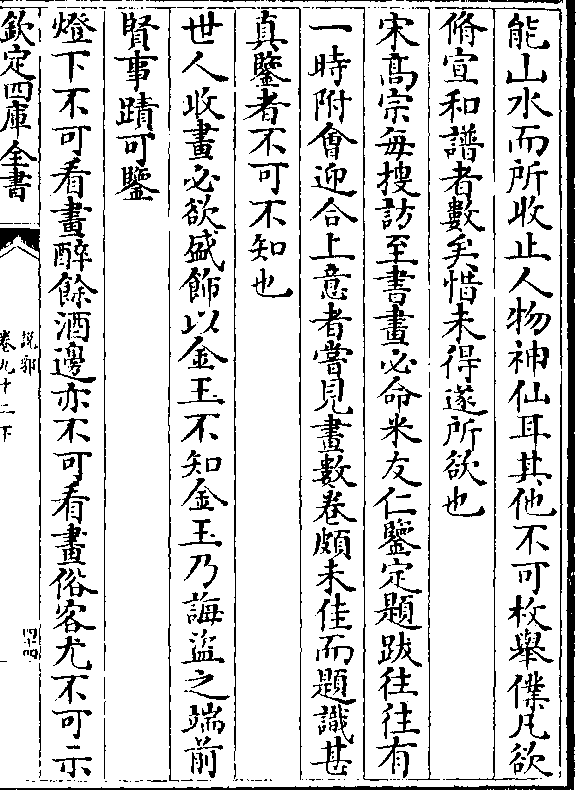 能山水而所收止人物神仙耳其他不可枚舉僕凡欲
脩宣和譜者數矣惜未得遂所欲也
宋髙宗每搜訪至書畫必命米友仁鑒定題跋往往有
一時附會迎合上意者嘗見畫數卷頗未佳而題識甚
真鑒者不可不知也
世人收畫必欲盛飾以金玉不知金玉乃誨盜之端前
賢事蹟可鑒
燈下不可看畫醉餘酒邊亦不可看畫俗客尤不可示
欽定四庫全書
說郛
卷九十二下
四十四